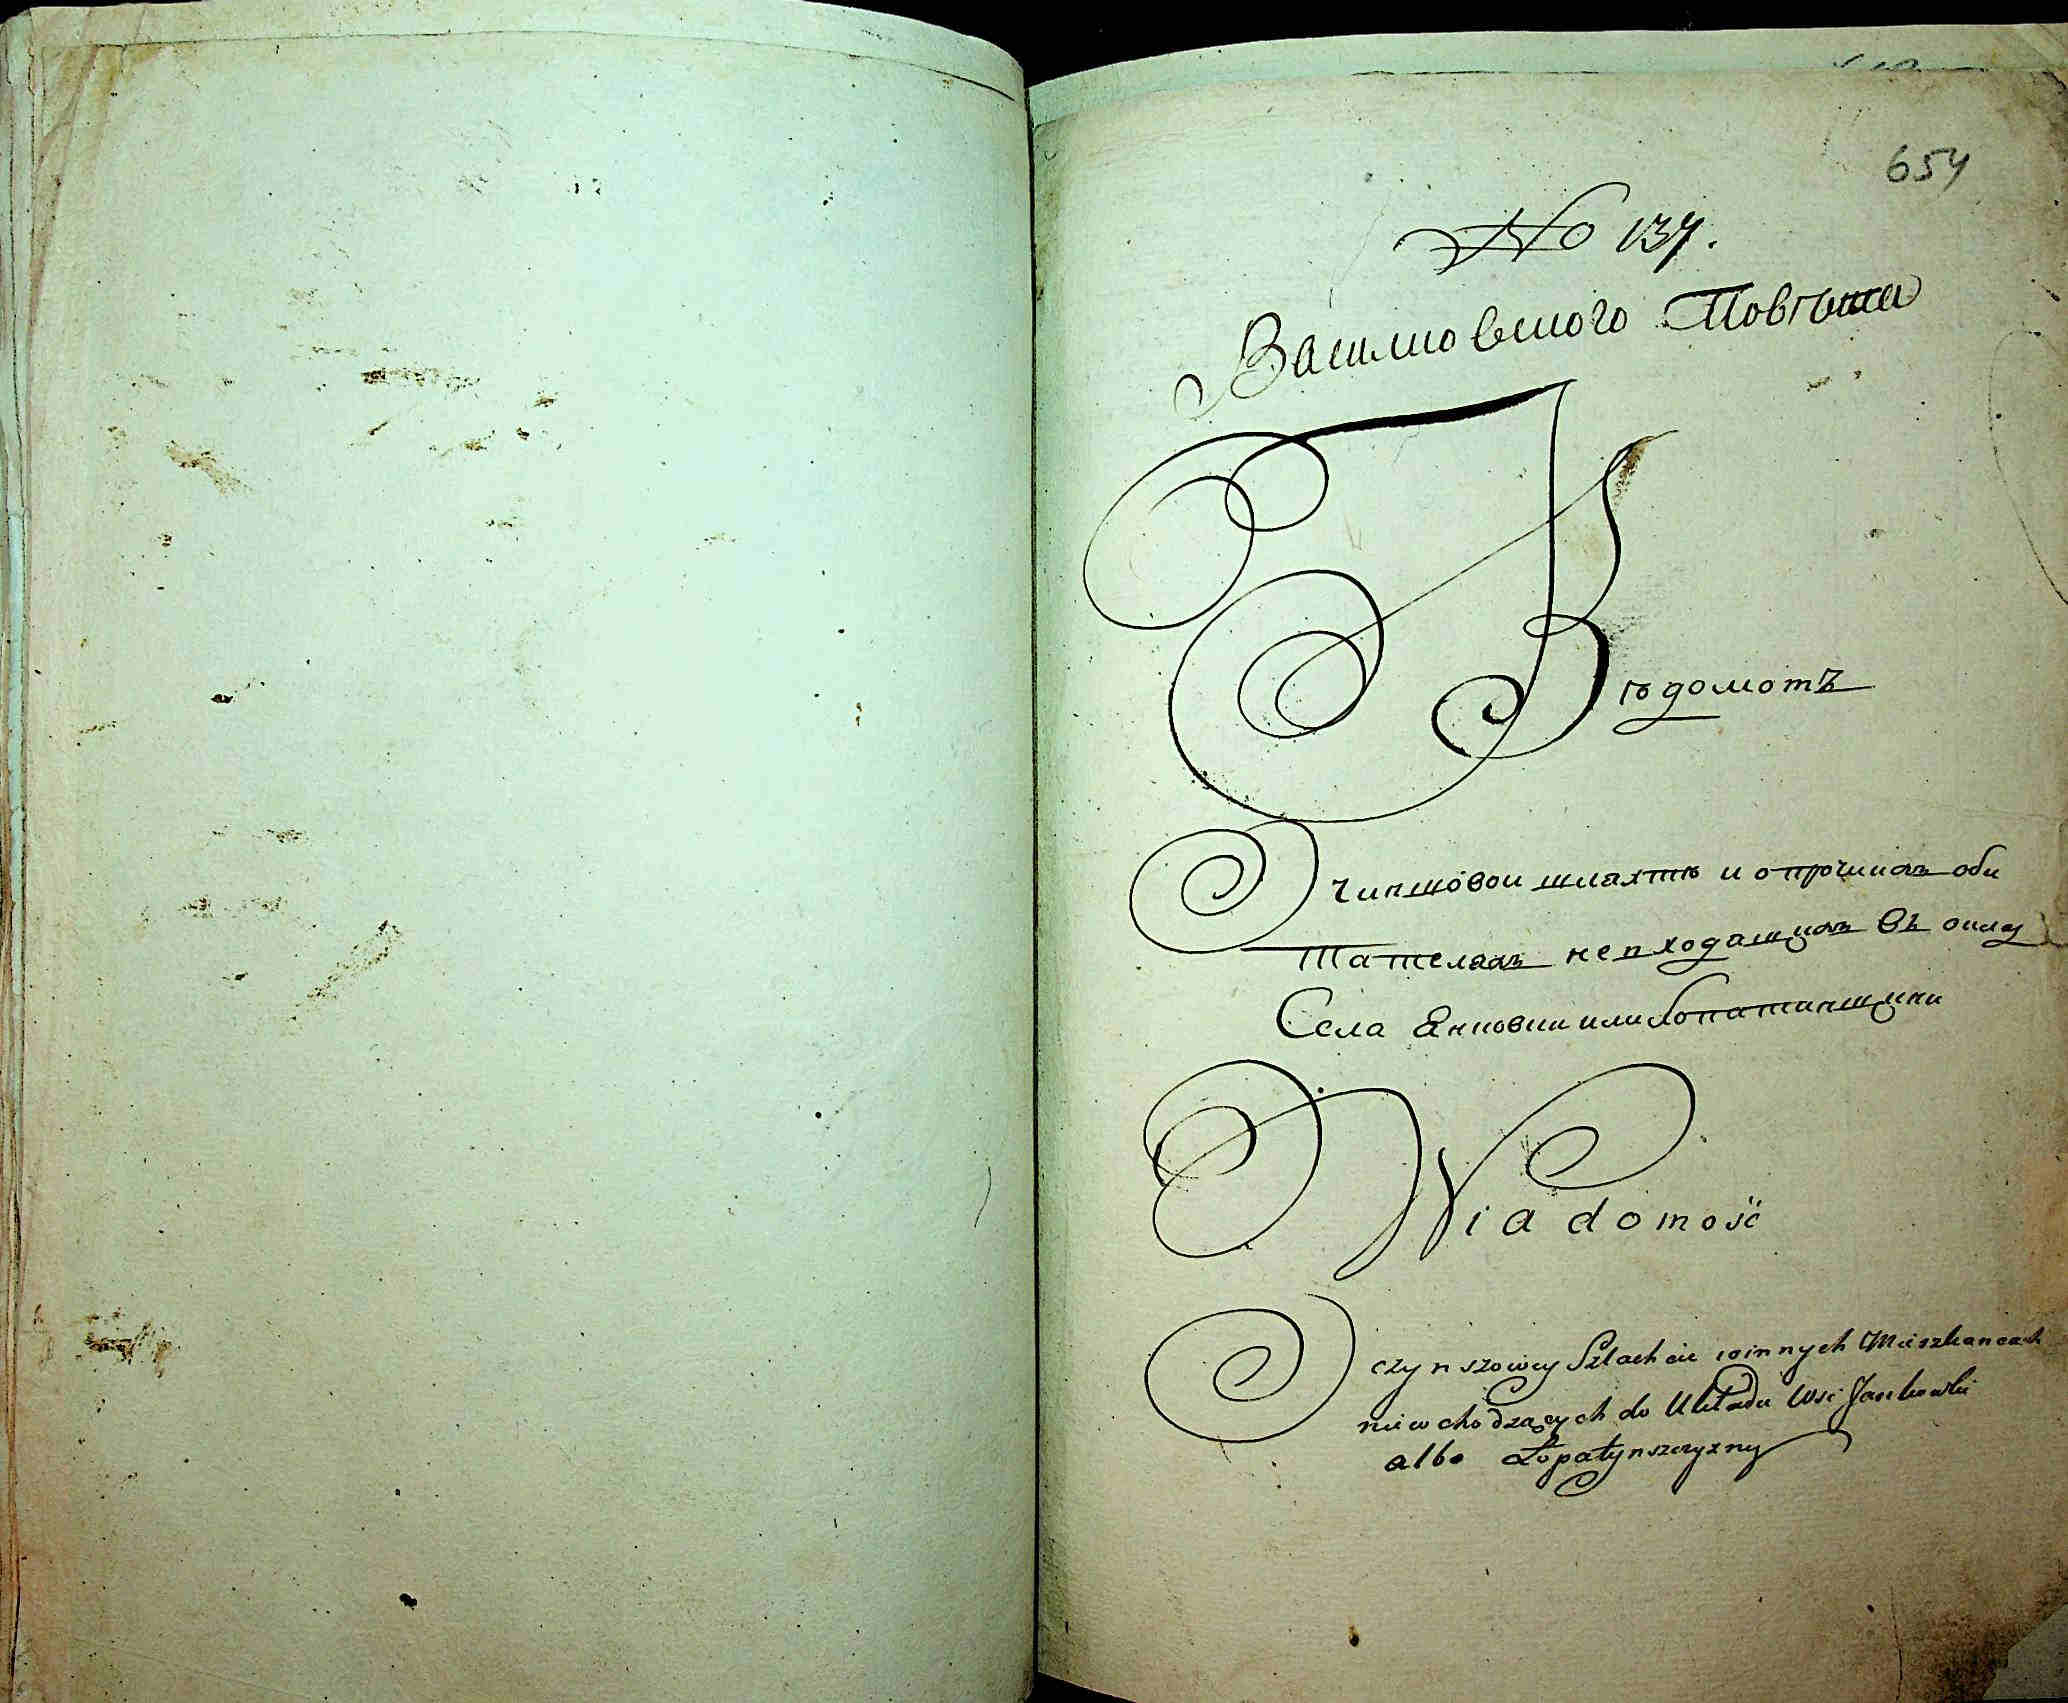 654
No 137.
Васильковского Повѣта
Вѣдомотъ
О чиншовои шляхтѣ и о прочихъ оби
тателяхъ невходящихъ въ окладъ
Села Янковки или Лопатинщини
Wiadomość
O czynszowey Szlachcie i oinnych Mieszkancach
niewchodzących do Układu Wsi Jankowki
albo Łopatynszczyzny